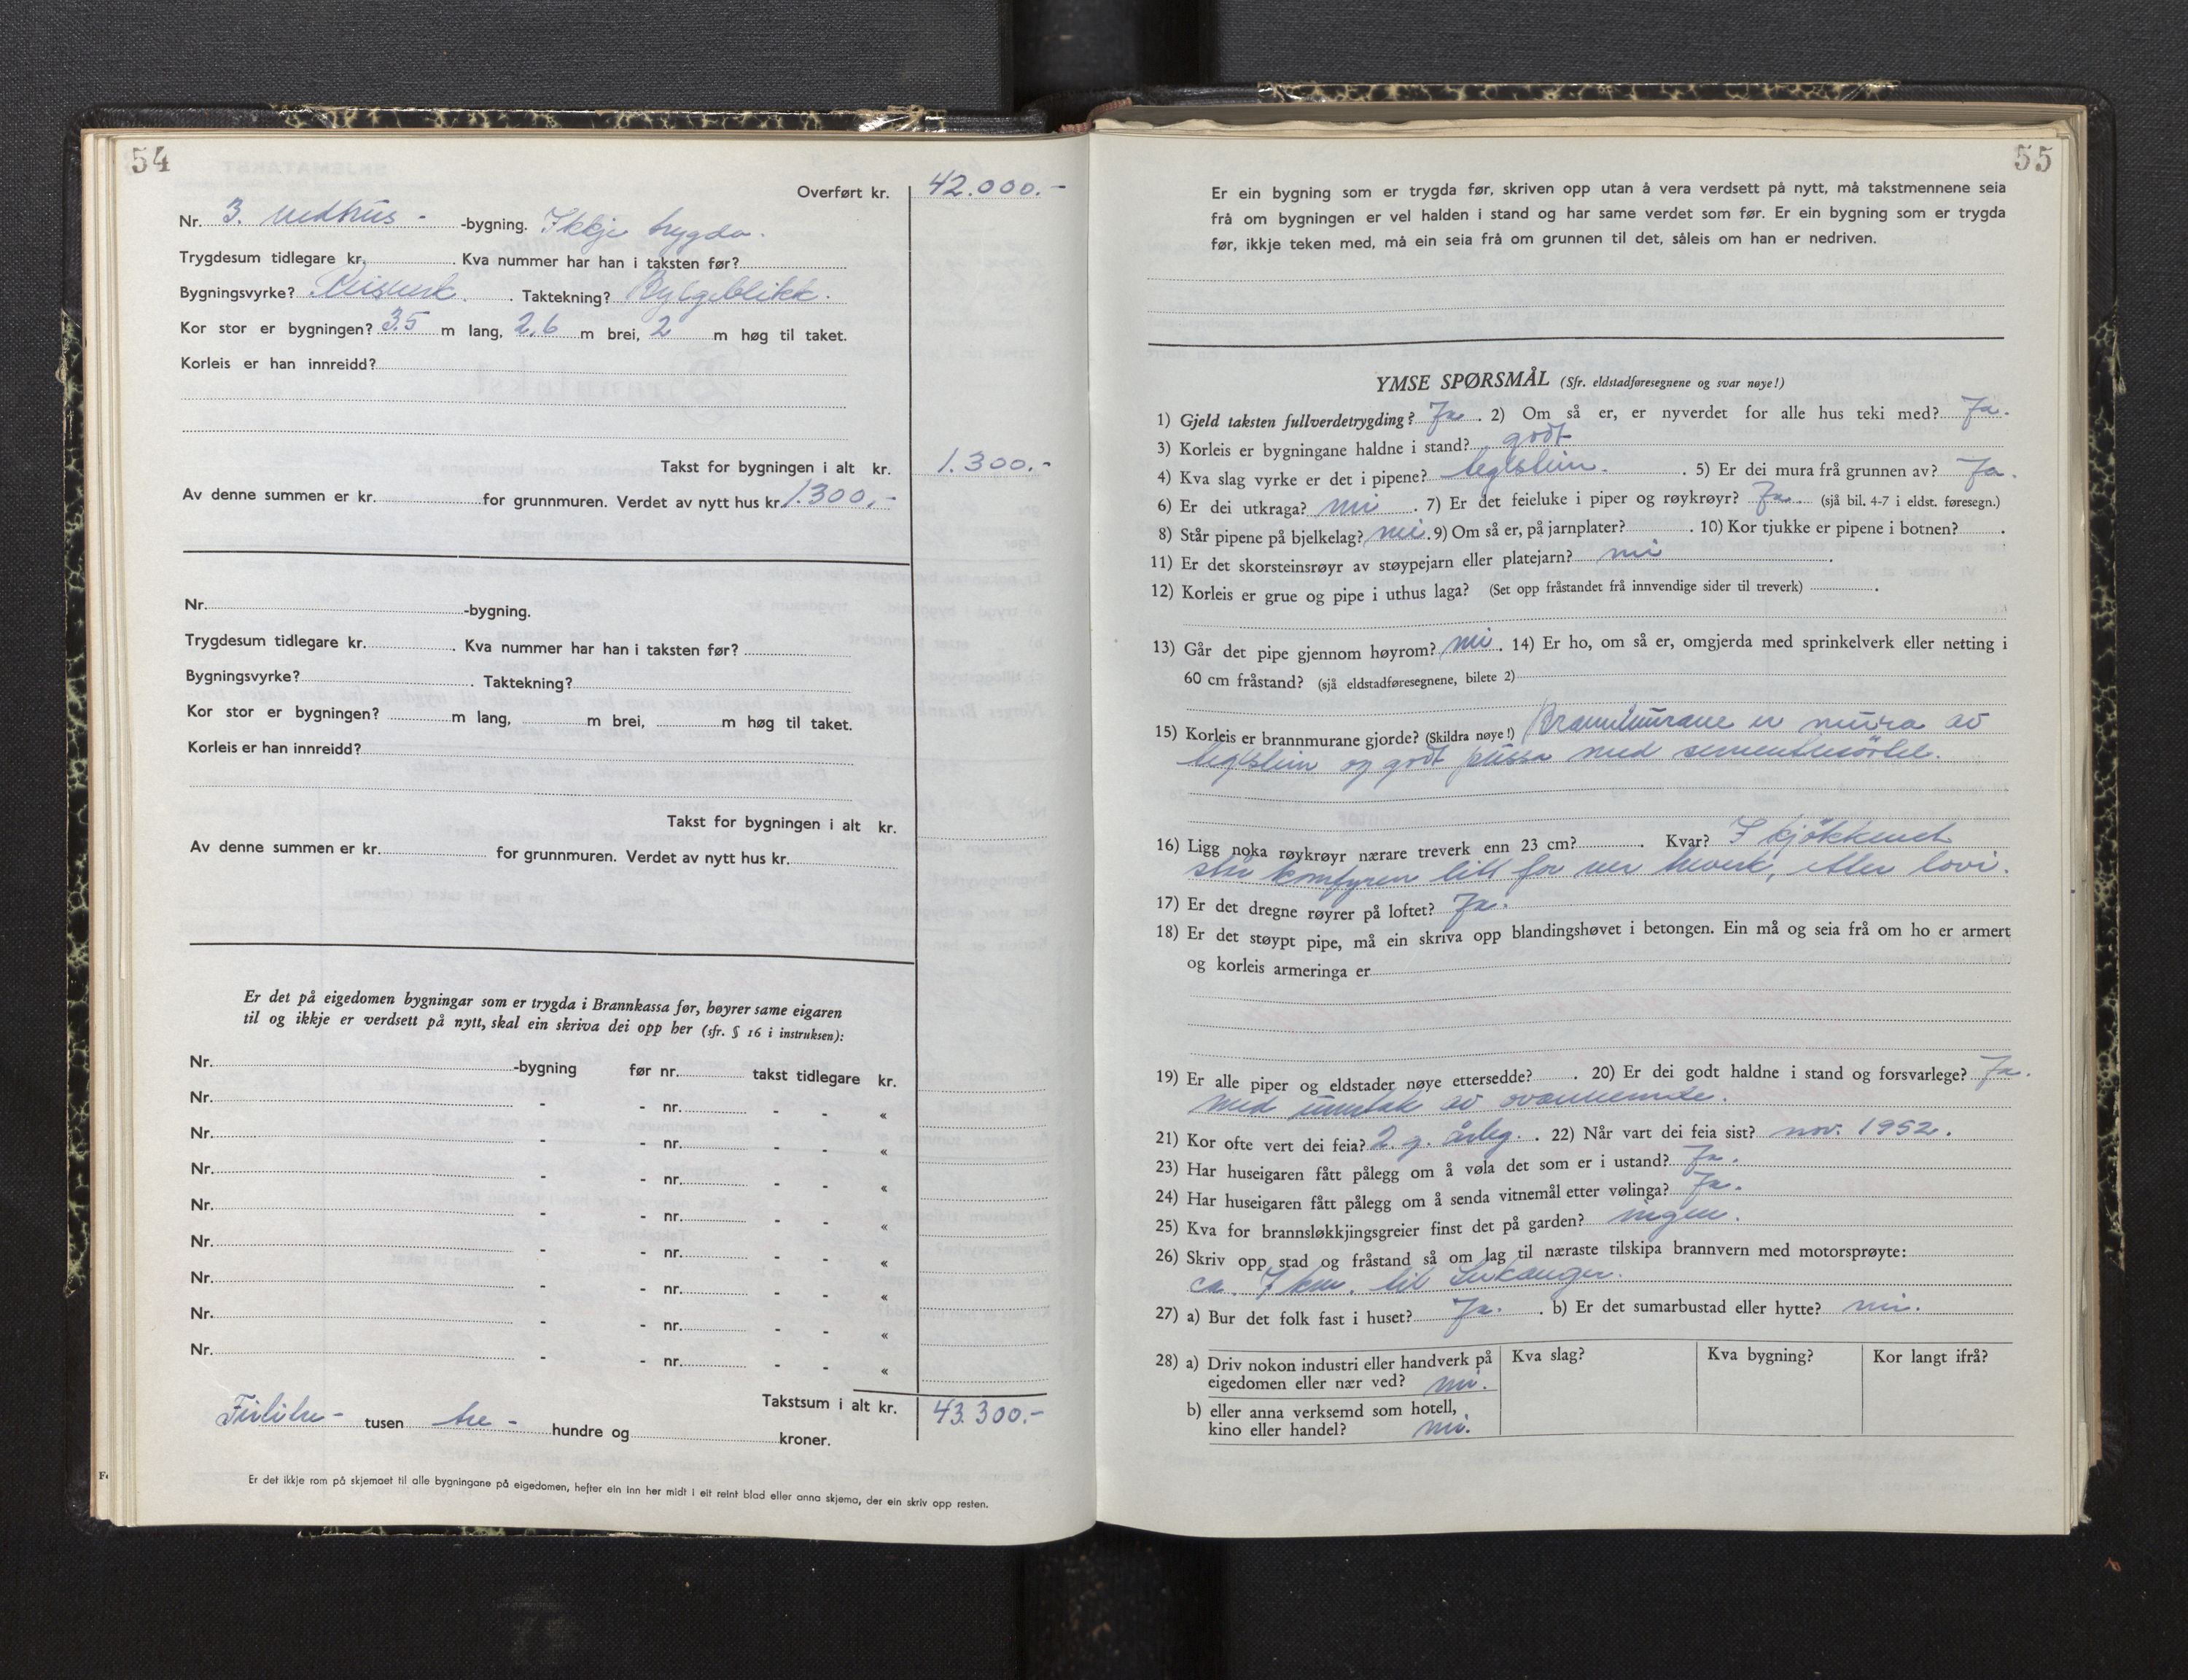 54
Overført kr. 42.000.-
Nr. 3. vedhus - -bygning. Ikkje trygda.
Trygdesum tidlegare kr. . Kva nummer har han i taksten før?
Bygningsvyrke? Reisverk. . Taktekning? Bylgeblikk.
Kor stor er bygningen? 3.5 m lang, 2,6 m brei, 2 m høg til taket.
Korleis er han innreidd?
Takst for bygningen i alt kr. 1.300.-
Av denne summen er kr. for grunnmuren. Verdet av nytt hus kr. 1.300,-
Nr. -bygning.
Trygdesum tidlegare kr. . Kva nummer har han i taksten før?
Bygningsvyrke? . Taktekning?
Kor stor er bygningen? m lang, m brei, m høg til taket.
Korleis er han innreidd?
Takst for bygningen i alt kr.
Av denne summen er kr. for grunnmuren. Verdet av nytt hus kr.
Er det på eigedomen bygningar som er trygda i Brannkassa før, høyrer same eigaren
til og ikkje er verdsett på nytt, skal ein skriva dei opp her (sfr. § 16 i instruksen):
Nr. -bygning før nr. takst tidlegare kr.
Nr. - - nr. - - «
Nr. - - nr. - - «
Nr. - - nr. - - «
Nr. - - nr. - - «
Nr. - - nr. - - «
Nr. - - nr. - - «
Nr. - - nr. - - «
Nr. - - nr. - - «
Takstsum i alt kr. 43.300.-
Førtitre - tusen tre - hundre og kroner.
Er det ikkje rom på skjemaet til alle bygningane på eigedomen, hefter ein inn her midt i eit reint blad eller anna skjema, der ein skriv opp resten.
55
Er ein bygning som er trygda før, skriven opp utan å vera verdsett på nytt, må takstmennene seia
frå om bygningen er vel halden i stand og har same verdet som før. Er ein bygning som er trygda
før, ikkje teken med, må ein seia frå om grunnen til det, såleis om han er nedriven.
YMSE SPØRSMÅL (Sfr. eldstadføresegnene og svar nøye!)
1) Gjeld taksten fullverdetrygding? Ja . 2) Om så er, er nyverdet for alle hus teki med? Ja.
3) Korleis er bygningane haldne i stand? godt
4) Kva slag vyrke er det i pipene? teglstein. . 5) Er dei mura frå grunnen av? Ja.
6) Er dei utkraga? nei . 7) Er det feieluke i piper og røykrøyr? Ja. (sjå bil. 4-7 i eldst. føresegn.)
8) Står pipene på bjelkelag? nei. 9) Om så er, på jarnplater? . 10) Kor tjukke er pipene i botnen? .
11) Er det skorsteinsrøyr av støypejarn eller platejarn? nei .
12) Korleis er grue og pipe i uthus laga? (Set opp fråstandet frå innvendige sider til treverk) .
13) Går det pipe gjennom høyrom? nei . 14) Er ho, om så er, omgjerda med sprinkelverk eller netting i
60 cm fråstand? (sjå eldstadføresegnene, bilete 2)
15) Korleis er brannmurane gjorde? (Skildra nøye!) Brannmurane er mura av
teglstein og godt pussa med sementmörtel.
16) Ligg noka røykrøyr nærare treverk enn 23 cm? . Kvar? I kjökkenet
står komfyren litt for nær treverk, etter lovi.
17) Er det dregne røyrer på loftet? Ja.
18) Er det støypt pipe, må ein skriva opp blandingshøvet i betongen. Ein må og seia frå om ho er armert
og korleis armeringa er
19) Er alle piper og eldstader nøye ettersedde? . 20) Er dei godt haldne i stand og forsvarlege? Ja.
med unntak av ovannemnde.
21) Kor ofte vert dei feia? 2 g. årleg. . 22) Når vart dei feia sist? nov. 1952.
23) Har huseigaren fått pålegg om å vøla det som er i ustand? Ja.
24) Har huseigaren fått pålegg om å senda vitnemål etter vølinga? Ja.
25) Kva for brannsløkkjingsgreier finst det på garden? ingen.
26) Skriv opp stad og fråstand så om lag til næraste tilskipa brannvern med motorsprøyte:
ca. 7 km. til Leikanger.
27) a) Bur det folk fast i huset? Ja. . b) Er det sumarbustad eller hytte? nei.
28) a) Driv nokon industri eller handverk på
eigedomen eller nær ved? nei.
b) eller anna verksemd som hotell,
kino eller handel? nei.
Kva slag?
Kva bygning?
Kor langt ifrå?